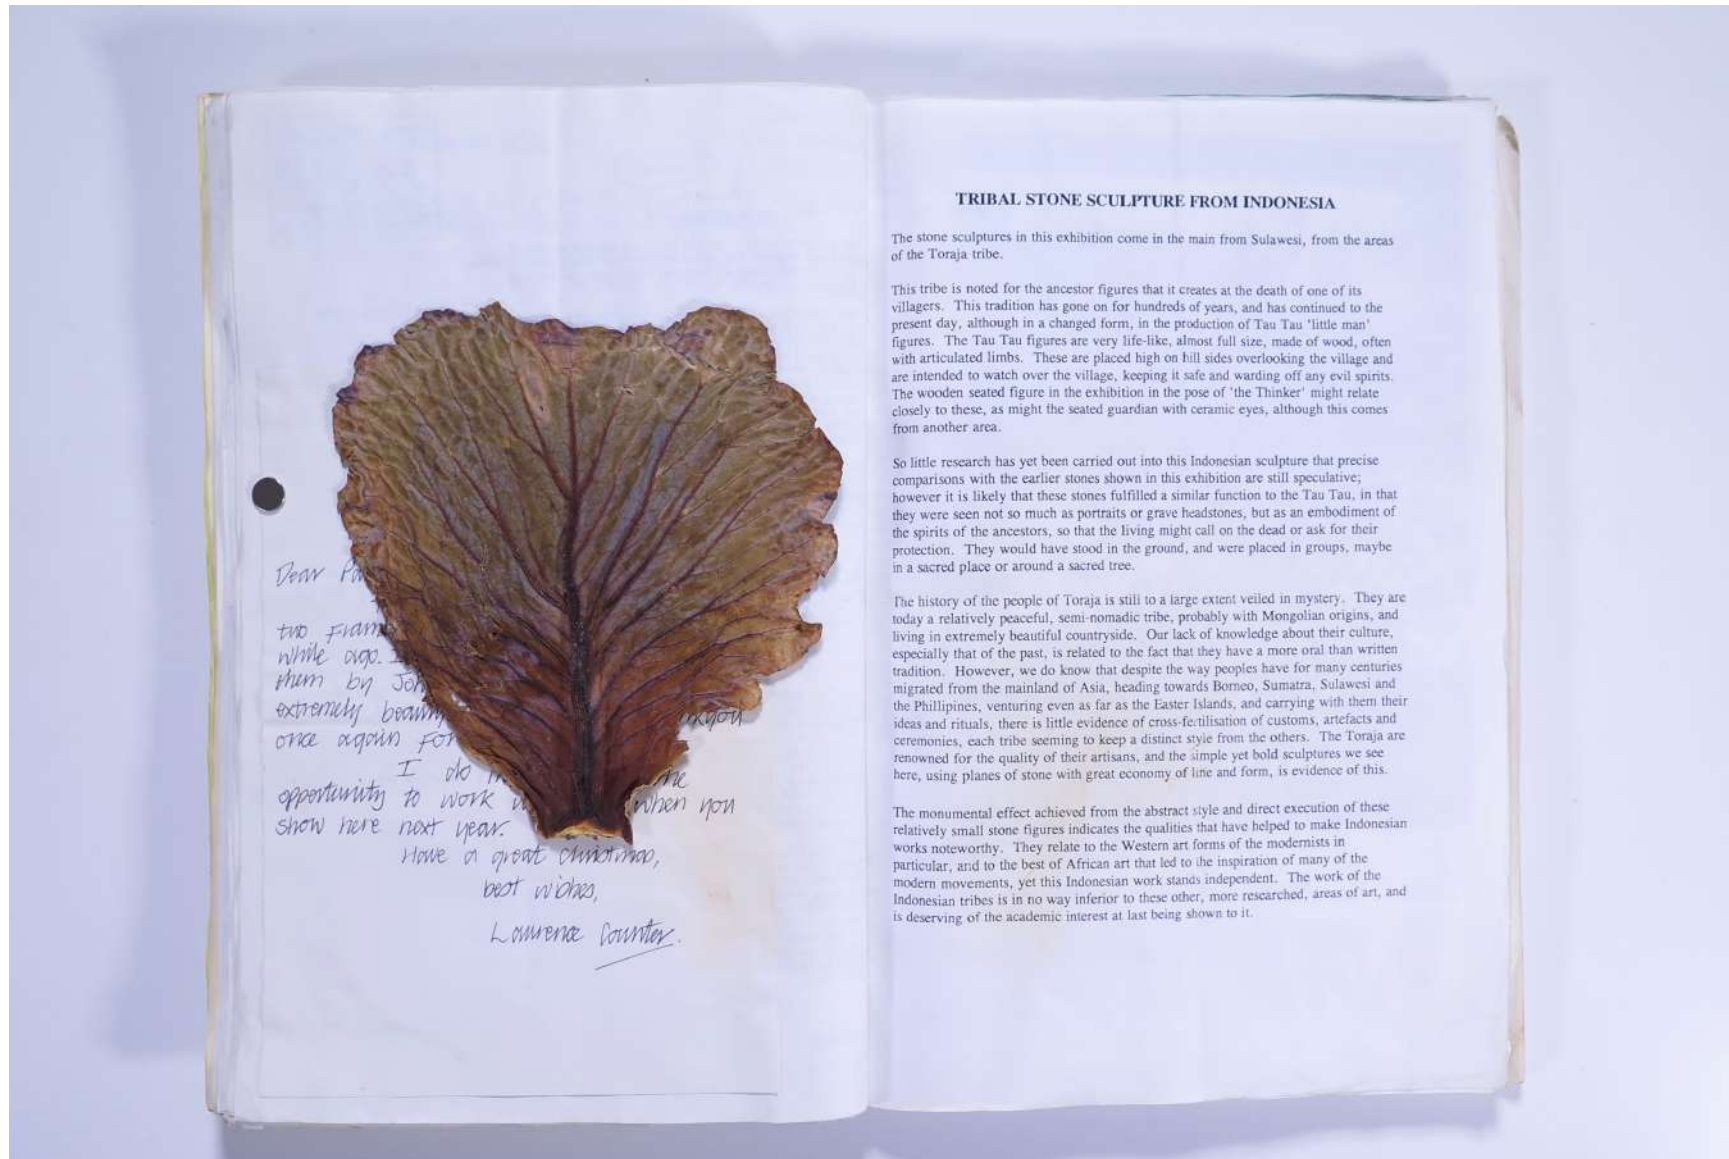 Dear
two
while ago.
them by
extremely
once again
I do
opportunity to work when you
show here next year.
Have a great Christmas,
best wishes,
Laurence Counter.
TRIBAL STONE SCULPTURE FROM INDONESIA
The stone sculptures in this exhibition come in the main from Sulawesi, from the areas
of the Toraja tribe.
This tribe is noted for the ancestor figures that it creates at the death of one of its
villagers. This tradition has gone on for hundreds of years, and has continued to the
present day, although in a changed form, in the production of Tau Tau 'little man'
figures. The Tau Tau figures are very life-like, almost full size, made of wood, often
with articulated limbs. These are placed high on hill sides overlooking the village and
are intended to watch over the village, keeping it safe and warding off any evil spirits.
The wooden seated figure in the exhibition in the pose of 'the Thinker' might relate
closely to these, as might the seated guardian with ceramic eyes, although this comes
from another area.
So little research has yet been carried out into this Indonesian sculpture that precise
comparisons with the earlier stones shown in this exhibition are still speculative;
however it is likely that these stones fulfilled a similar function to the Tau Tau, in that
they were seen not so much as portraits or grave headstones, but as an embodiment of
the spirits of the ancestors, so that the living might call on the dead or ask for their
protection. They would have stood in the ground, and were placed in groups, maybe
in a sacred place or around a sacred tree.
The history of the people of Toraja is still to a large extent veiled in mystery. They are
today a relatively peaceful, semi-nomadic tribe, probably with Mongolian origins, and
living in extremely beautiful countryside. Our lack of knowledge about their culture,
especially that of the past, is related to the fact that they have a more oral than written
tradition. However, we do know that despite the way peoples have for many centuries
migrated from the mainland of Asia, heading towards Borneo, Sumatra, Sulawesi and
the Phillipines, venturing even as far as the Easter Islands, and carrying with them their
ideas and rituals, there is little evidence of cross-fertilisation of customs, artefacts and
ceremonies, each tribe seeming to keep a distinct style from the others. The Toraja are
renowned for the quality of their artisans, and the simple yet bold sculptures we see
here, using planes of stone with great economy of line and form, is evidence of this.
The monumental effect achieved from the abstract style and direct execution of these
relatively small stone figures indicates the qualities that have helped to make Indonesian
works noteworthy. They relate to the Western art forms of the modernists in
particular, and to the best of African art that led to the inspiration of many of the
modern movements, yet this Indonesian work stands independent. The work of the
Indonesian tribes is in no way inferior to these other, more researched, areas of art, and
is deserving of the academic interest at last being shown to it.